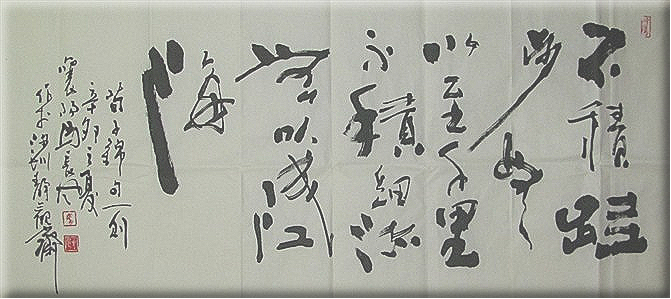 不積跬
步無
以至千里
不積細流
無以成江
海
荀子錦句一則
辛卯之夏
襄陽周長
作於深圳靜觀齋